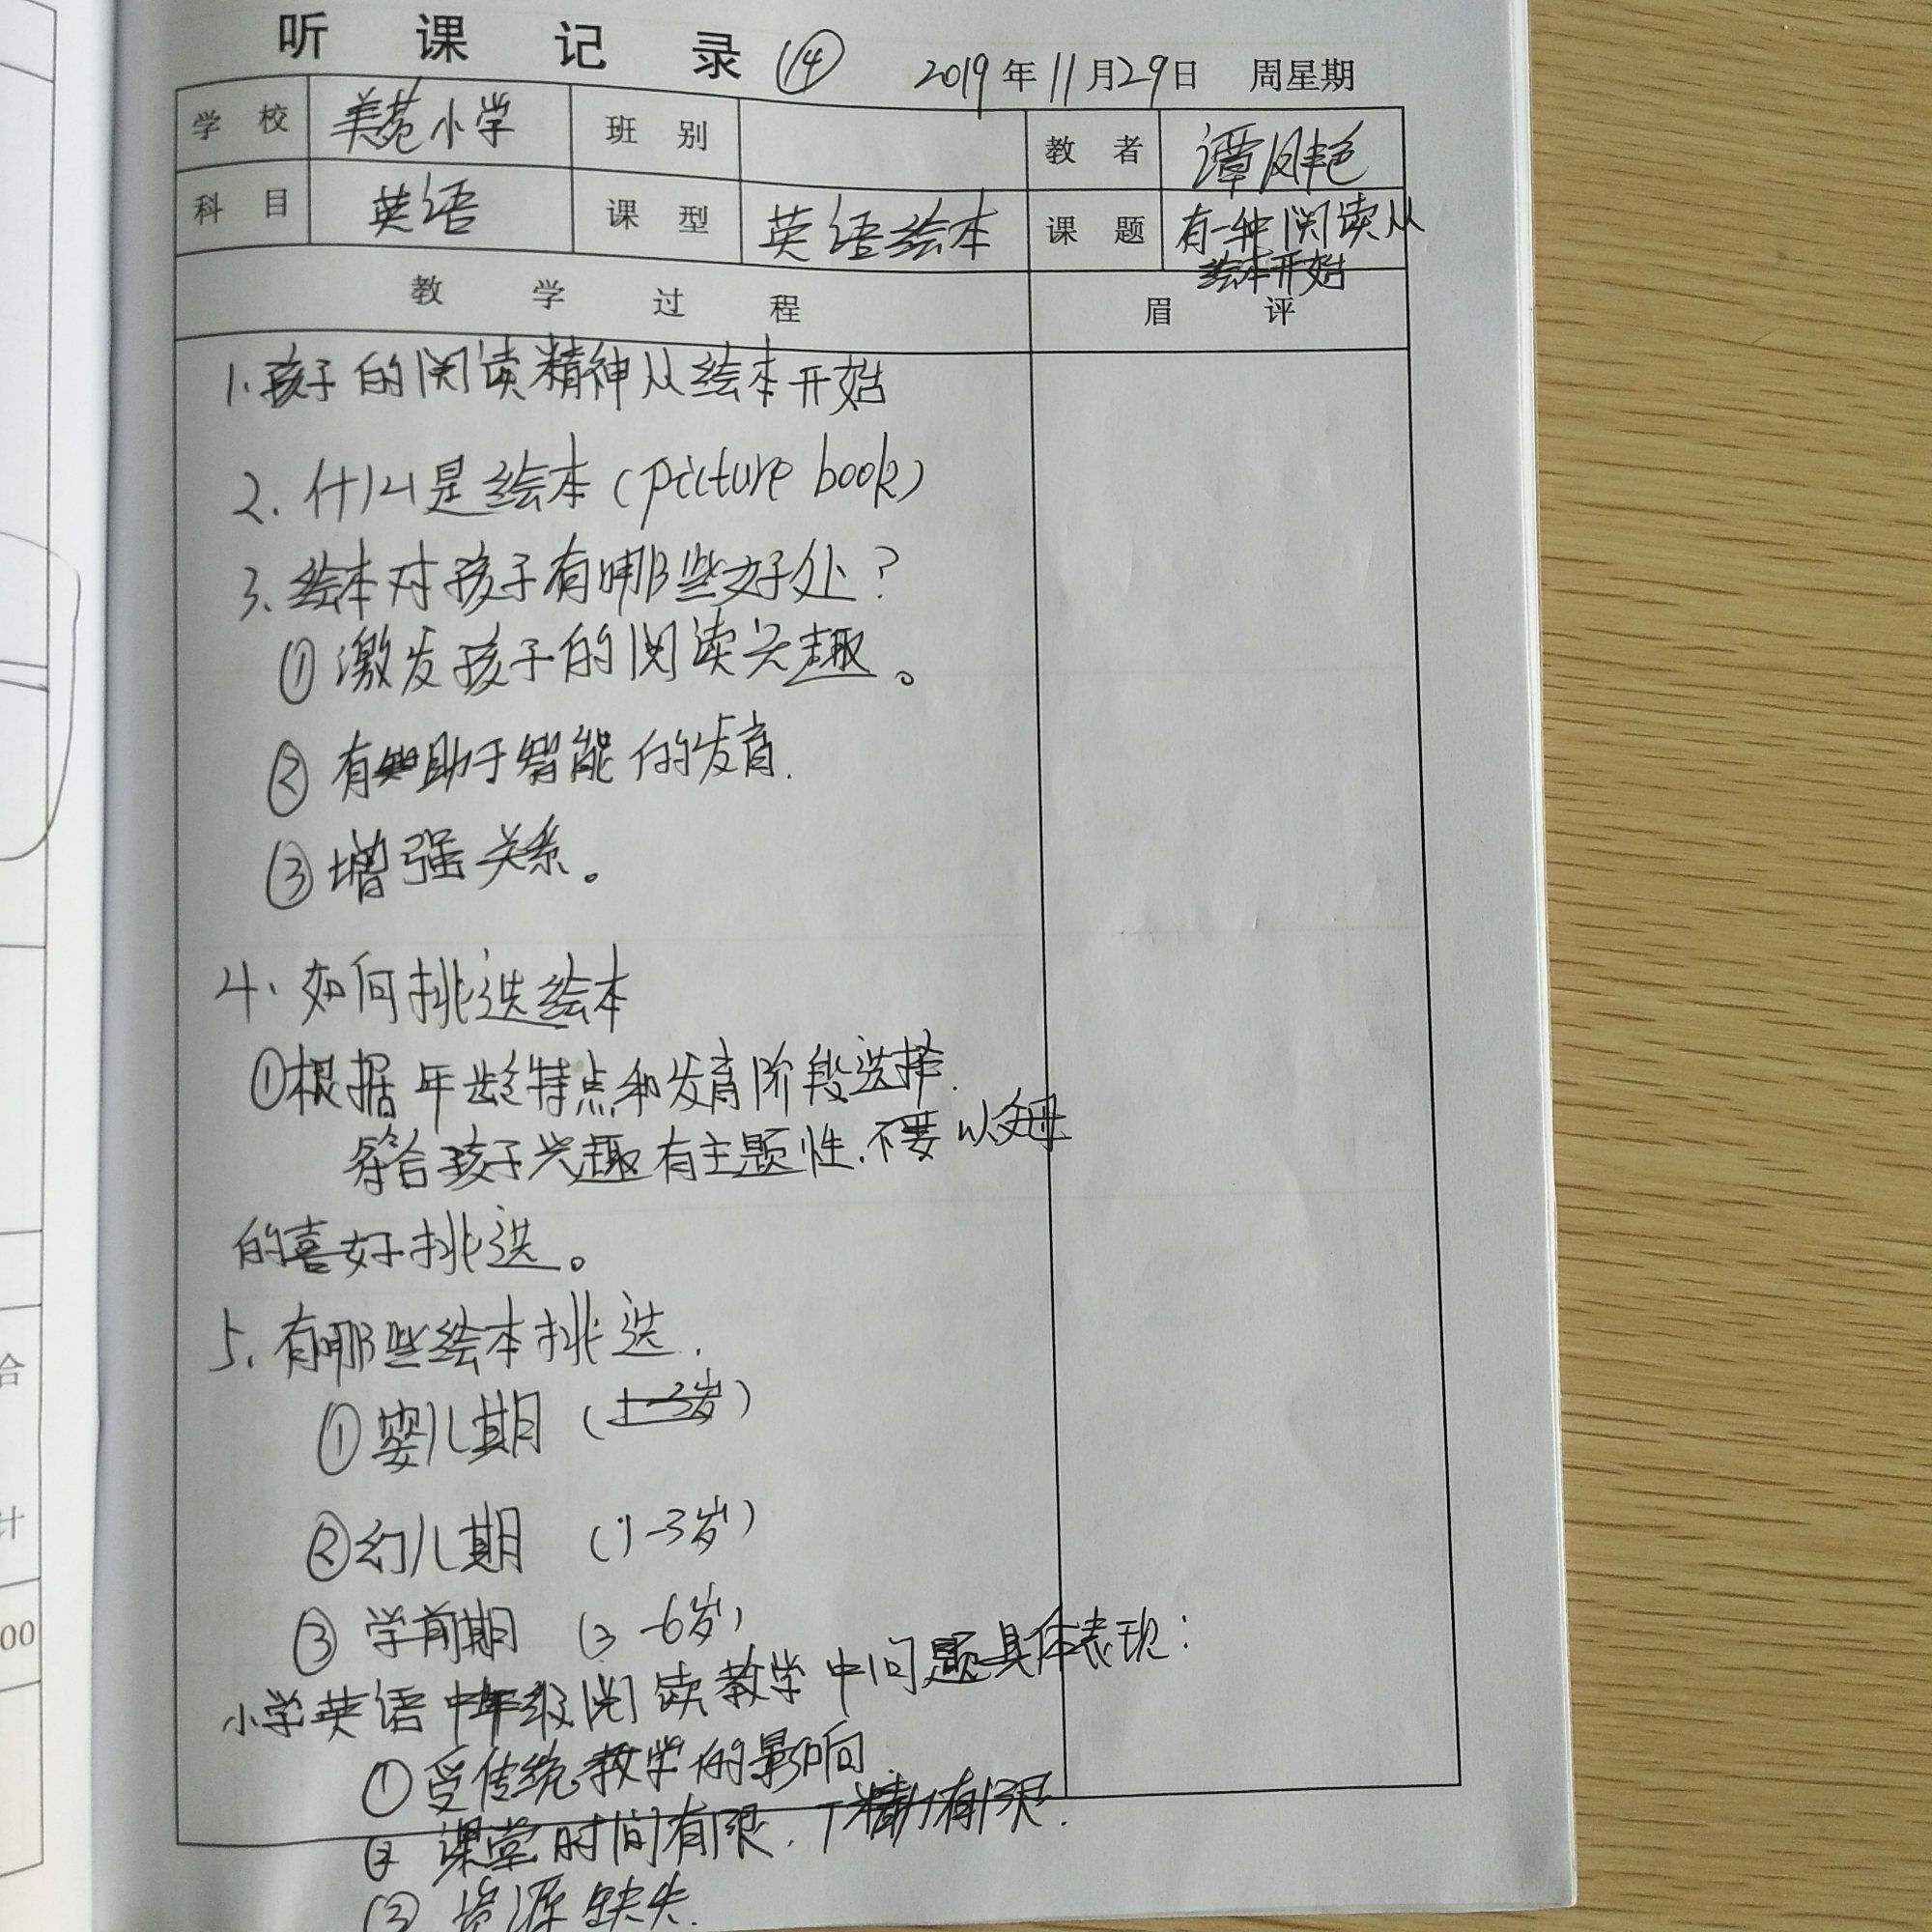 听课记录 ⑭ 2019年11月29日 周星期
学校 美苑小学 班别 教者 谭凤艳
科目 英语 课型 英语绘本 课题 有一种阅读从
绘本开始
教学过程 眉评
1.孩子的阅读精神从绘本开始
2.什么是绘本(picture book)
3.绘本对孩子有哪些好处?
①激发孩子的阅读兴趣。
②有助于智能的发育.
③增强关系。
4.如何挑选绘本
①根据年龄特点和发育阶段选择.
符合孩子兴趣有主题性.不要以父母
的喜好挑选。
5.有哪些绘本挑选.
①婴儿期(1-3岁)
②幼儿期(1-3岁)
③学前期(3-6岁)
小学英语中年级阅读教学中问题具体表现:
①受传统教学的影响
② 课堂时间有限. 精力有限.
③ 资源缺失.
合
计
00